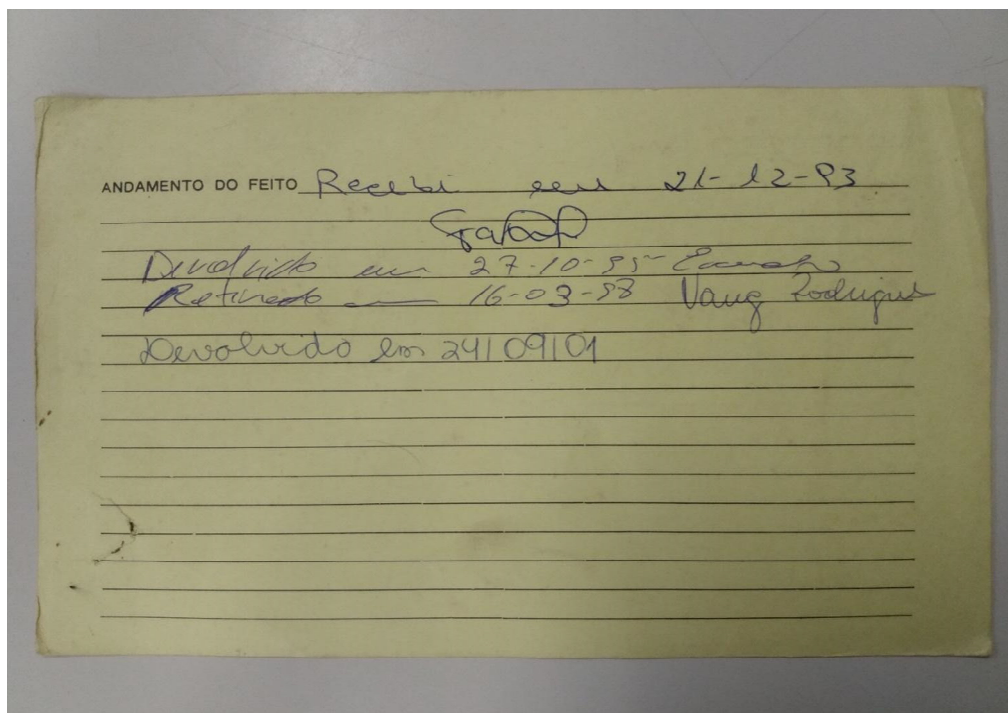 ANDAMENTO DO FEITO Recebi em 21-12-93
Devolvido em 27-10-95
Retirado em 16-03-98 Vany Rodrigues
Devolvido em 24/09/01